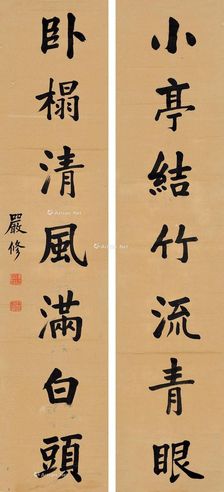 小亭結竹流青眼
卧榻清風滿白頭
嚴修